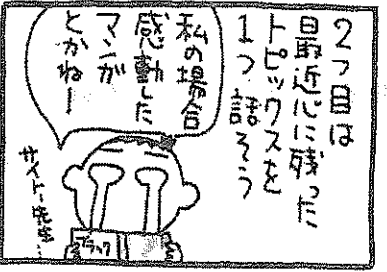 2つ目は
最近心に残った
トピックスを
1つ話そう
私の場合
感動した
マンガ
とかねー
サイトー先生…
ブラック